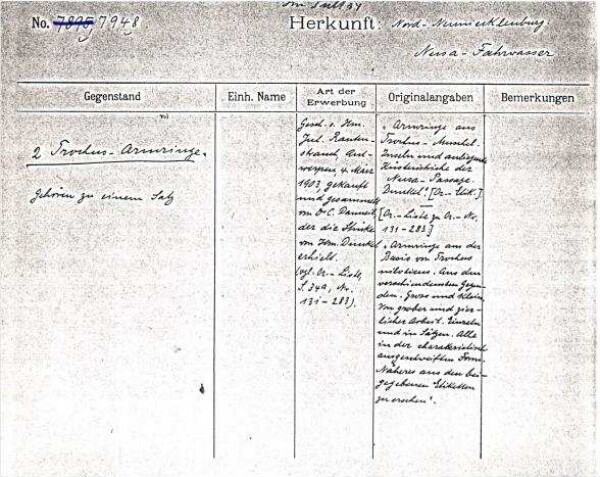 No. 7895 7948
Herkunft: Nord-Neumecklenburg.
Nusa-Fahrwasser
Gegenstand
Einh. Name
Art der Erwerbung
Originalangaben
Bemerkungen
2 Trochus-Armringe.
Gehören zu einem Satz
Gesch. v. Hrn.
Jul. Rauten-
strauch, Ant-
werpen, 4. März
1903, gekauft
und gesammelt
von Dr C. Danneil,
der die Stücke
von Hrn. Dunkel
erhielt.
(vgl. Or.-Liste,
S. 34a, No.
131-283).
"Armringe aus
Trochus-Muschel.
Inseln und
Küstenstriche der
Nusa-Passage.
Dunkel." [Or.-Etik.]
[Or.-Liste zu Or.-No.
131-283]
"Armringe aus der
Basis von Trochus
niloticus. Aus den
verschiedensten Gegen-
den. Gross und klein,
von grober und zier-
licher Arbeit. Einzeln
und in Sätzen. Alle
in der charakteristisch
ausgeschweiften Form.
Näheres aus den bei-
gegebenen Etiketten
zu ersehen".